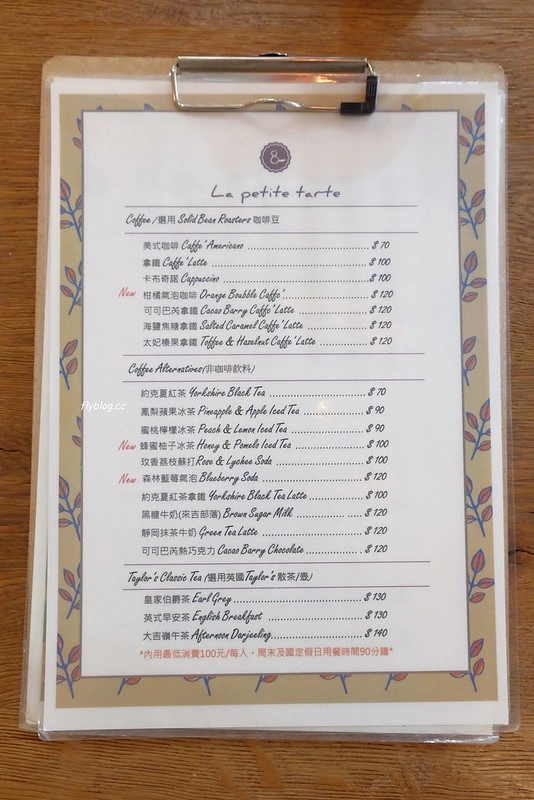 &
La petite tarte
Coffee / 選用 Solid Bean Roasters 咖啡豆
美式咖啡 Caffe' Americano $ 70
拿鐵 Caffe' Latte $ 100
卡布奇諾 Cappuccino $ 100
New 柑橘氣泡咖啡 Orange Boubble Caffe' $ 120
可可巴芮拿鐵 Cacao Barry Caffe' Latte $ 120
海鹽焦糖拿鐵 Salted Caramel Caffe' Latte $ 120
太妃榛果拿鐵 Toffee & Hazelnut Caffe' Latte $ 120
Coffee Alternatives(非咖啡飲料)
約克夏紅茶 Yorkshire Black Tea $ 70
鳳梨蘋果冰茶 Pineapple & Apple Iced Tea $ 90
flyblog.cc
蜜桃檸檬冰茶 Peach & Lemon Iced Tea $ 90
New 蜂蜜柚子冰茶 Honey & Pomelo Iced Tea $ 100
玫香荔枝蘇打 Rose & Lychee Soda $ 100
New 森林藍莓氣泡 Blueberry Soda $ 120
約克夏紅茶拿鐵 Yorkshire Black Tea Latte $ 100
黑糖牛奶(來吉部落) Brown Sugar Milk $ 120
靜岡抹茶牛奶 Green Tea Latte $ 120
可可巴芮熱巧克力 Cacao Barry Chocolate $ 120
Taylor's Classic Tea (選用英國Taylor's 散茶/壺)
皇家伯爵茶 Earl Grey $ 130
英式早安茶 English Breakfast $ 130
大吉嶺午茶 Afternoon Darjeeling $ 140
*內用最低消費100元/每人，周末及國定假日用餐時間90分鐘*